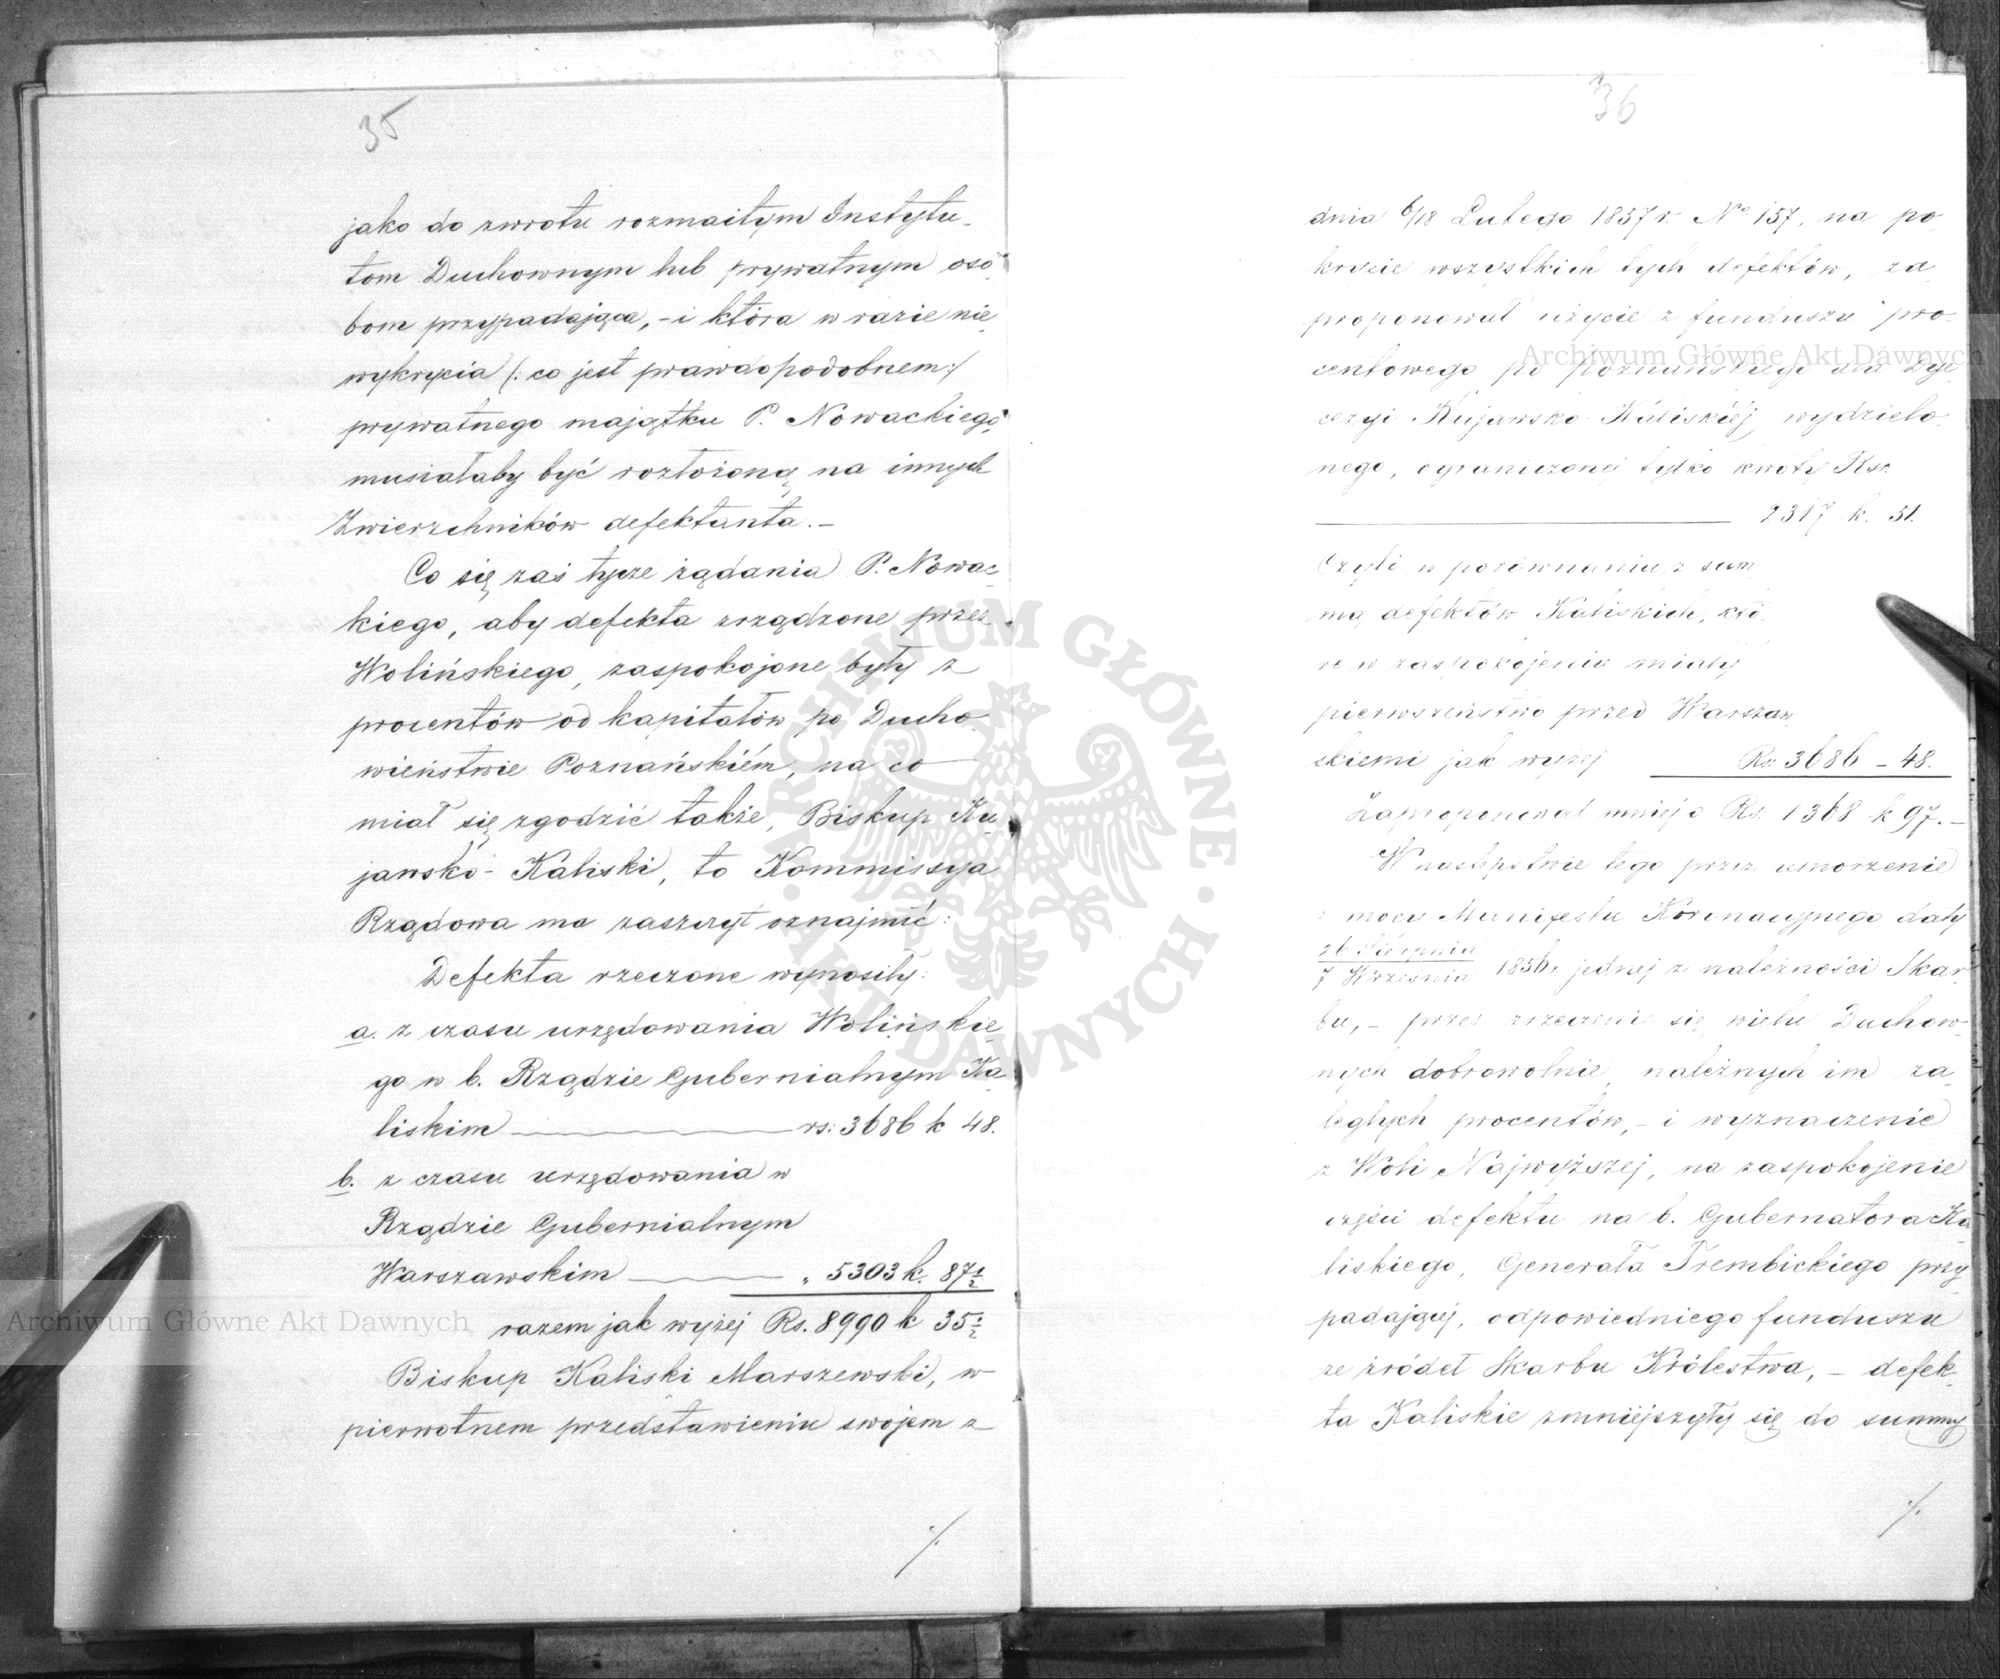 35
jako do zwrotu rozmaitym Instytu-
tom Duchownym lub prywatnym oso-
bom przypadająca, - i która w razie nie-
wykrycia (: co jest prawdopodobnem :)
prywatnego majątku P. Nowackiego
musiałaby być rozłożoną na innych
Zwierzchników defektanta. -
Co się zaś tycze żądania P. Nowac-
kiego, aby defekta zrządzone przez
Wolińskiego, zaspokojone były z
procentów od kapitałów po Ducho-
wieństwie Poznańskiém, na co
miał się zgodzić także, Biskup Ku-
jawsko-Kaliski, to Kommissya
Rządowa ma zaszczyt oznajmić:
Defekta rzeczone wynosiły:
a. z czasu urzędowania Wolińskie-
go w b. Rządzie Gubernialnym Ka-
liskim rs: 3686 k 48.
b. z czasu urzędowania w
Rządzie Gubernialnym
Warszawskim „ 5303 k. 87½
razem jak wyżej Rs. 8990 k 35½
Biskup Kaliski Marszewski, w
pierwotnem przedstawieniu swojem z
./.
36
dnia 6/18 Lutego 1857 r. No 157, na po-
krycie wszystkich tych defektów, za-
proponował użycie z funduszu pro-
centowego po poznańskiego dla Dye-
cezyi Kujawsko-Kaliskiéj wydzielo-
nego, ograniczonej tylko kwoty Rsr.
2317 k. 51.
Czyli w porównaniu z sum-
mą defektów Kaliskich, któ-
re w zaspokojeniu miały
pierwszeństwo przed Warszaw-
skiemi jak wyżej Rs: 3686 - 48.
Zaproponował mniej o Rs. 1368 k 97. -
W następstwie tego przez umorzenie
z mocy Manifestu Koronacyjnego daty
26 Sierpnia
7 Września 1856 r. jednej z należności Skar-
bu, - przez zrzeczenie się wielu Duchow-
nych dobrowolnie należnych im za-
ległych procentów, - i wyznaczenie
z Woli Najwyższej, na zaspokojenie
części defektu na b. Gubernatora Ka-
liskiego, Generała Trembickiego przy-
padającej, odpowiedniego funduszu
ze źródeł Skarbu Królestwa, - defek-
ta Kaliskie zmniejszyły się do summy
./.
Archiwum Główne Akt Dawnych
Archiwum Główne Akt Dawnych
ARCHIWUM GŁÓWNE AKT DAWNYCH